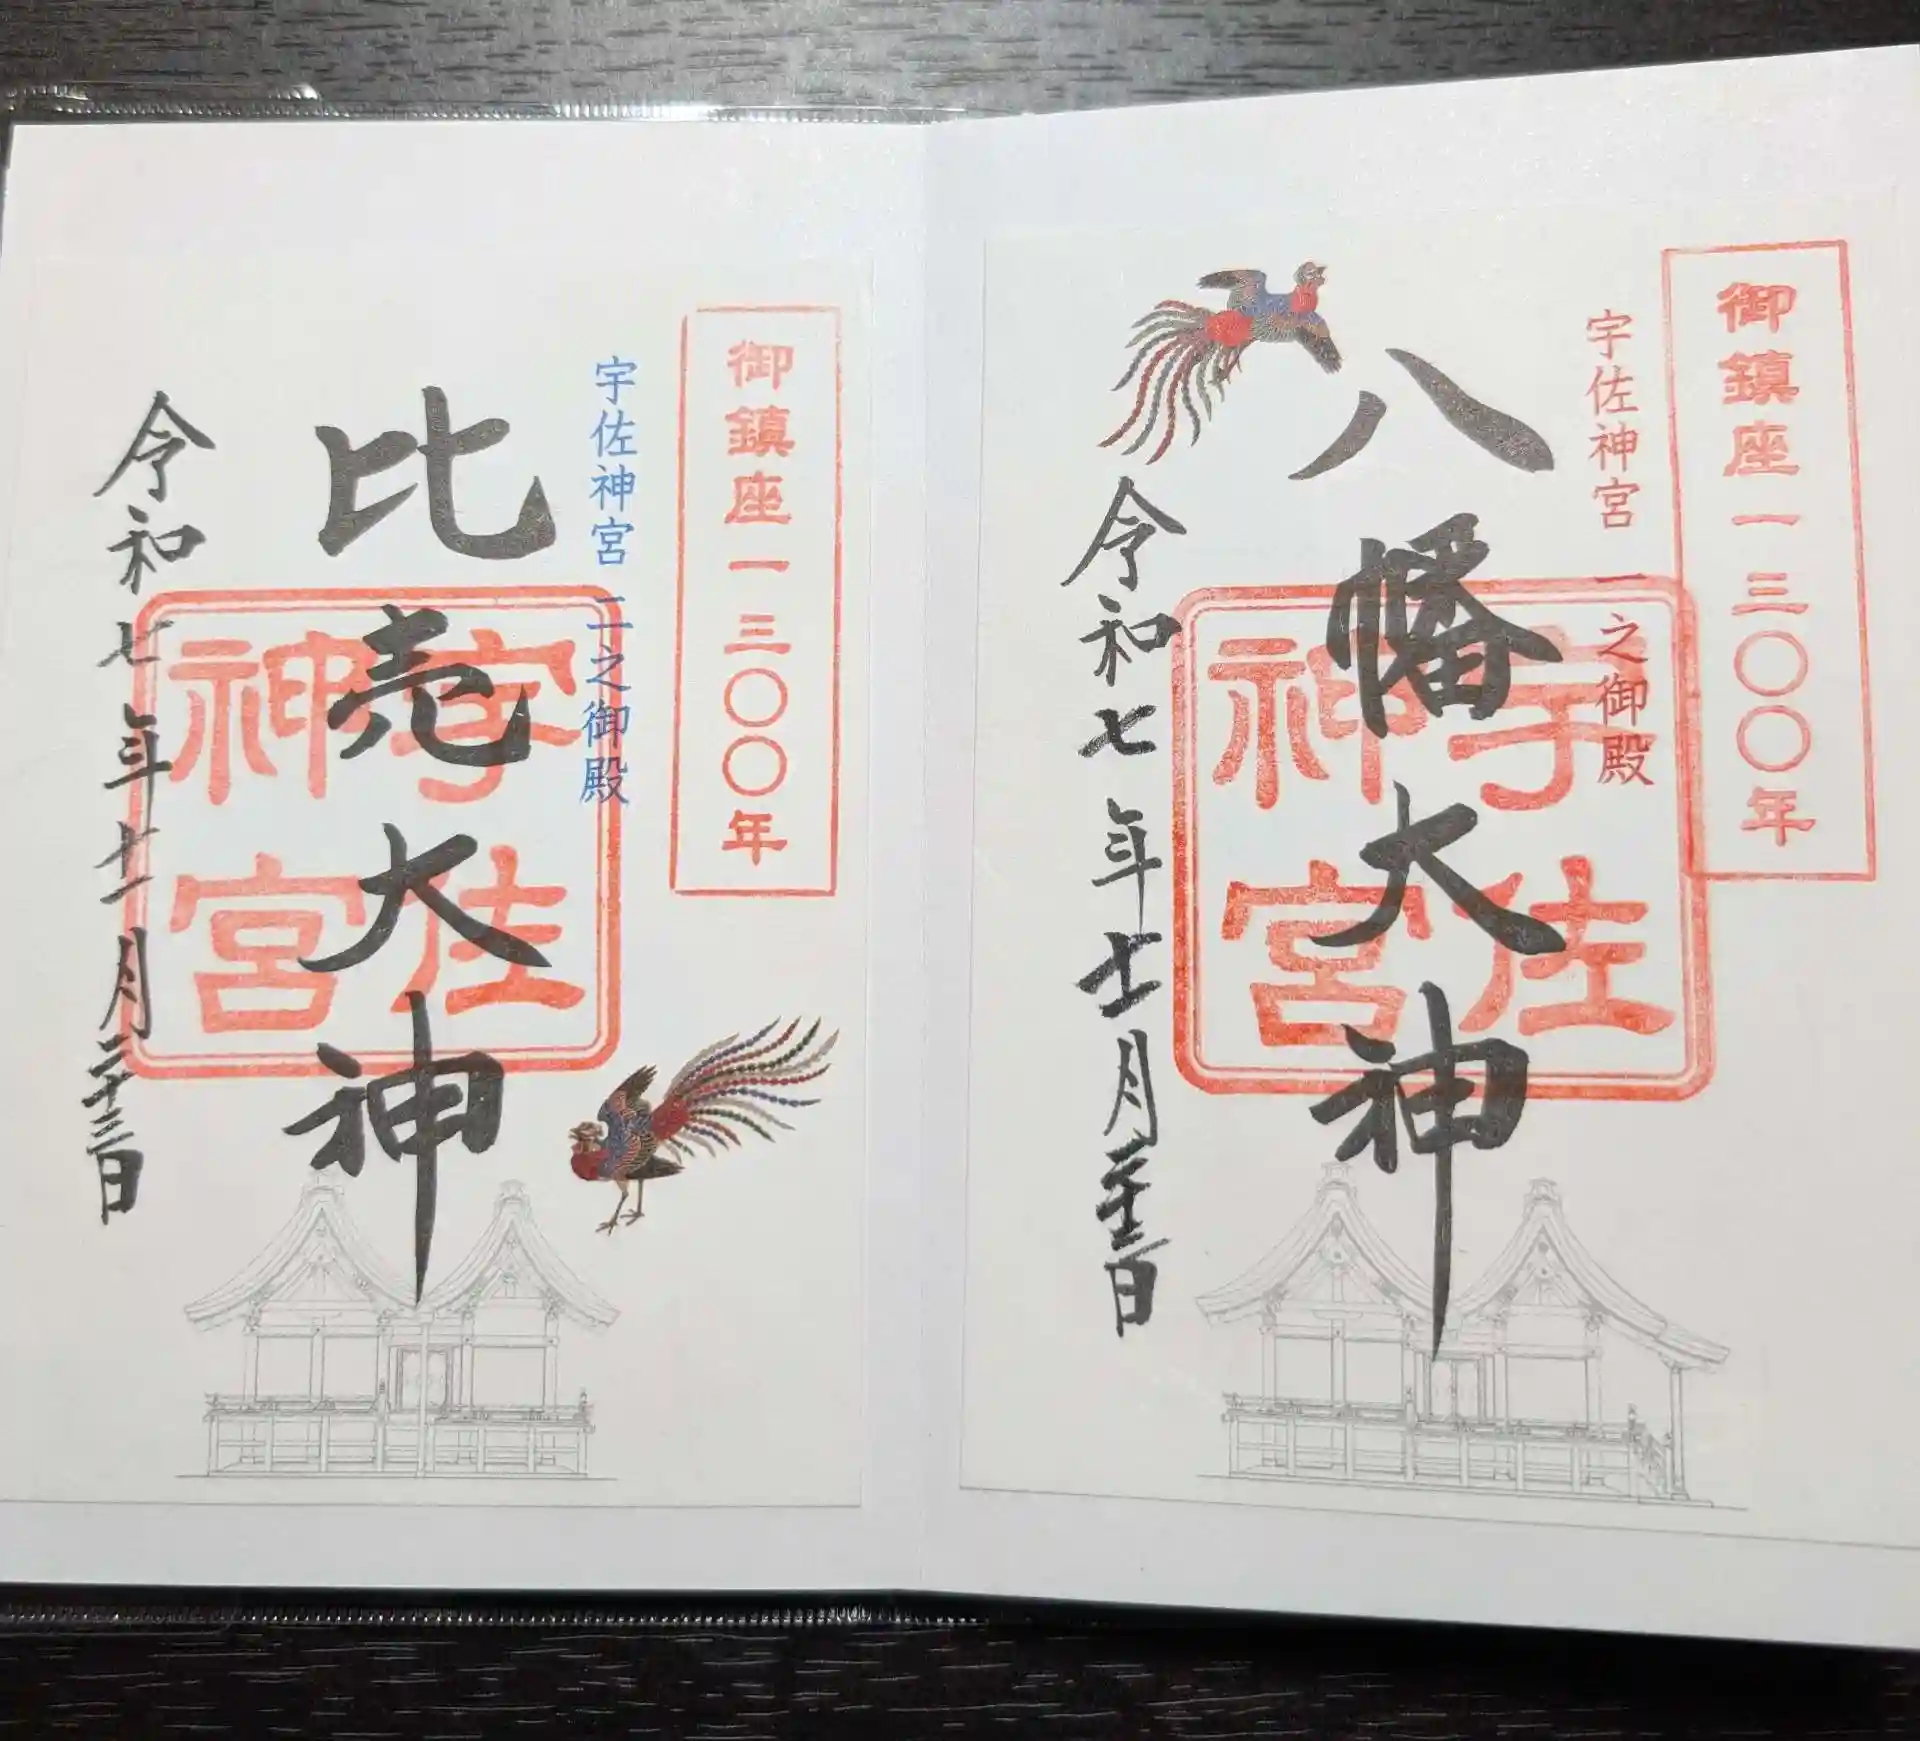 御鎮座一三〇〇年
宇佐神宮 一之御殿
八幡大神
宇佐
神宮
令和七年十一月二十三日
御鎮座一三〇〇年
宇佐神宮 二之御殿
比売大神
宇佐
神宮
令和七年十一月二十三日